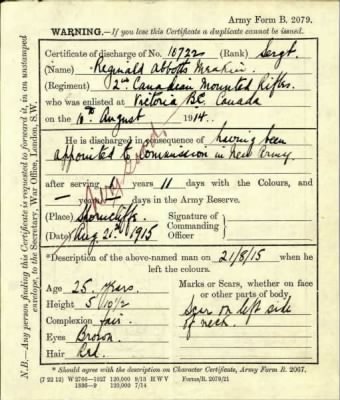 Army Form B. 2079.
WARNING.—If you lose this Certificate a duplicate cannot be issued.
Certificate of discharge of No. 10722 (Rank) Sergt.
(Name) Reginald Abbotts Meakin.
(Regiment) 2nd Canadian Mounted Rifles.
who was enlisted at Victoria BC. Canada
on the August 1914.
He is discharged in consequence of having been
appointed to Commission in New Army
after serving years 11 days with the Colours, and
— years — days in the Army Reserve.
(Place) Shorncliffe Signature of
Commanding
(Date) Aug. 21st 1915 Officer
*Description of the above-named man on 21/8/15 when he
left the colours.
Age 25. Years. Marks or Scars, whether on face
or other parts of body.
Height 5' 10 1/2
Complexion fair. Scar on left side
of neck.
Eyes Brown.
Hair Red.
* Should agree with the description on Character Certificate, Army Form B. 2067.
(7 22 12) W 2766—1827 120,000 9/13 H W V Forms/B. 2079/21
1836—9 130,000 7/14
N.B.—Any person finding this Certificate is requested to forward it in an unstamped
envelope, to the Secretary, War Office, London, S.W.